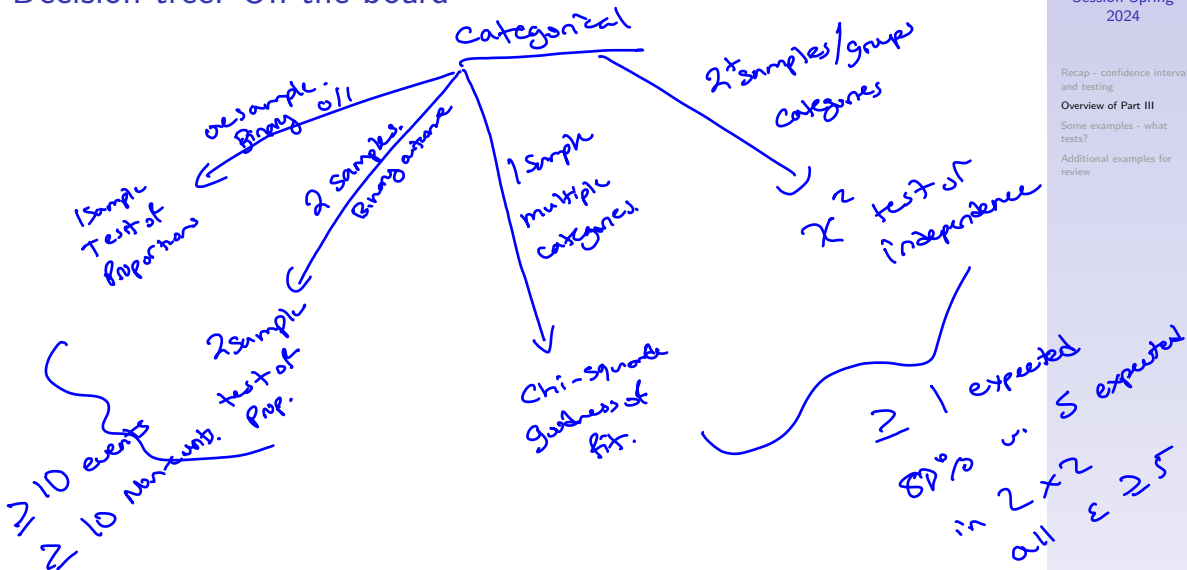 Decision tree: On the board
Session Spring
2024
Recap - confidence interva
and testing
Overview of Part III
Some examples - what
tests?
Additional examples for
review
Categorical
one sample.
Binary 0/1
1 sample
Test of
Proportions
2 samples.
Binary outcome
2 sample
test of
prop.
1 sample
multiple
categories.
Chi-square
goodness of
fit.
2+ samples/groups
categories
χ² test of
independence
≥ 10 events
≥ 10 Non-events.
≥ 1 expected
80% 5 expected
in 2x2
all E ≥5